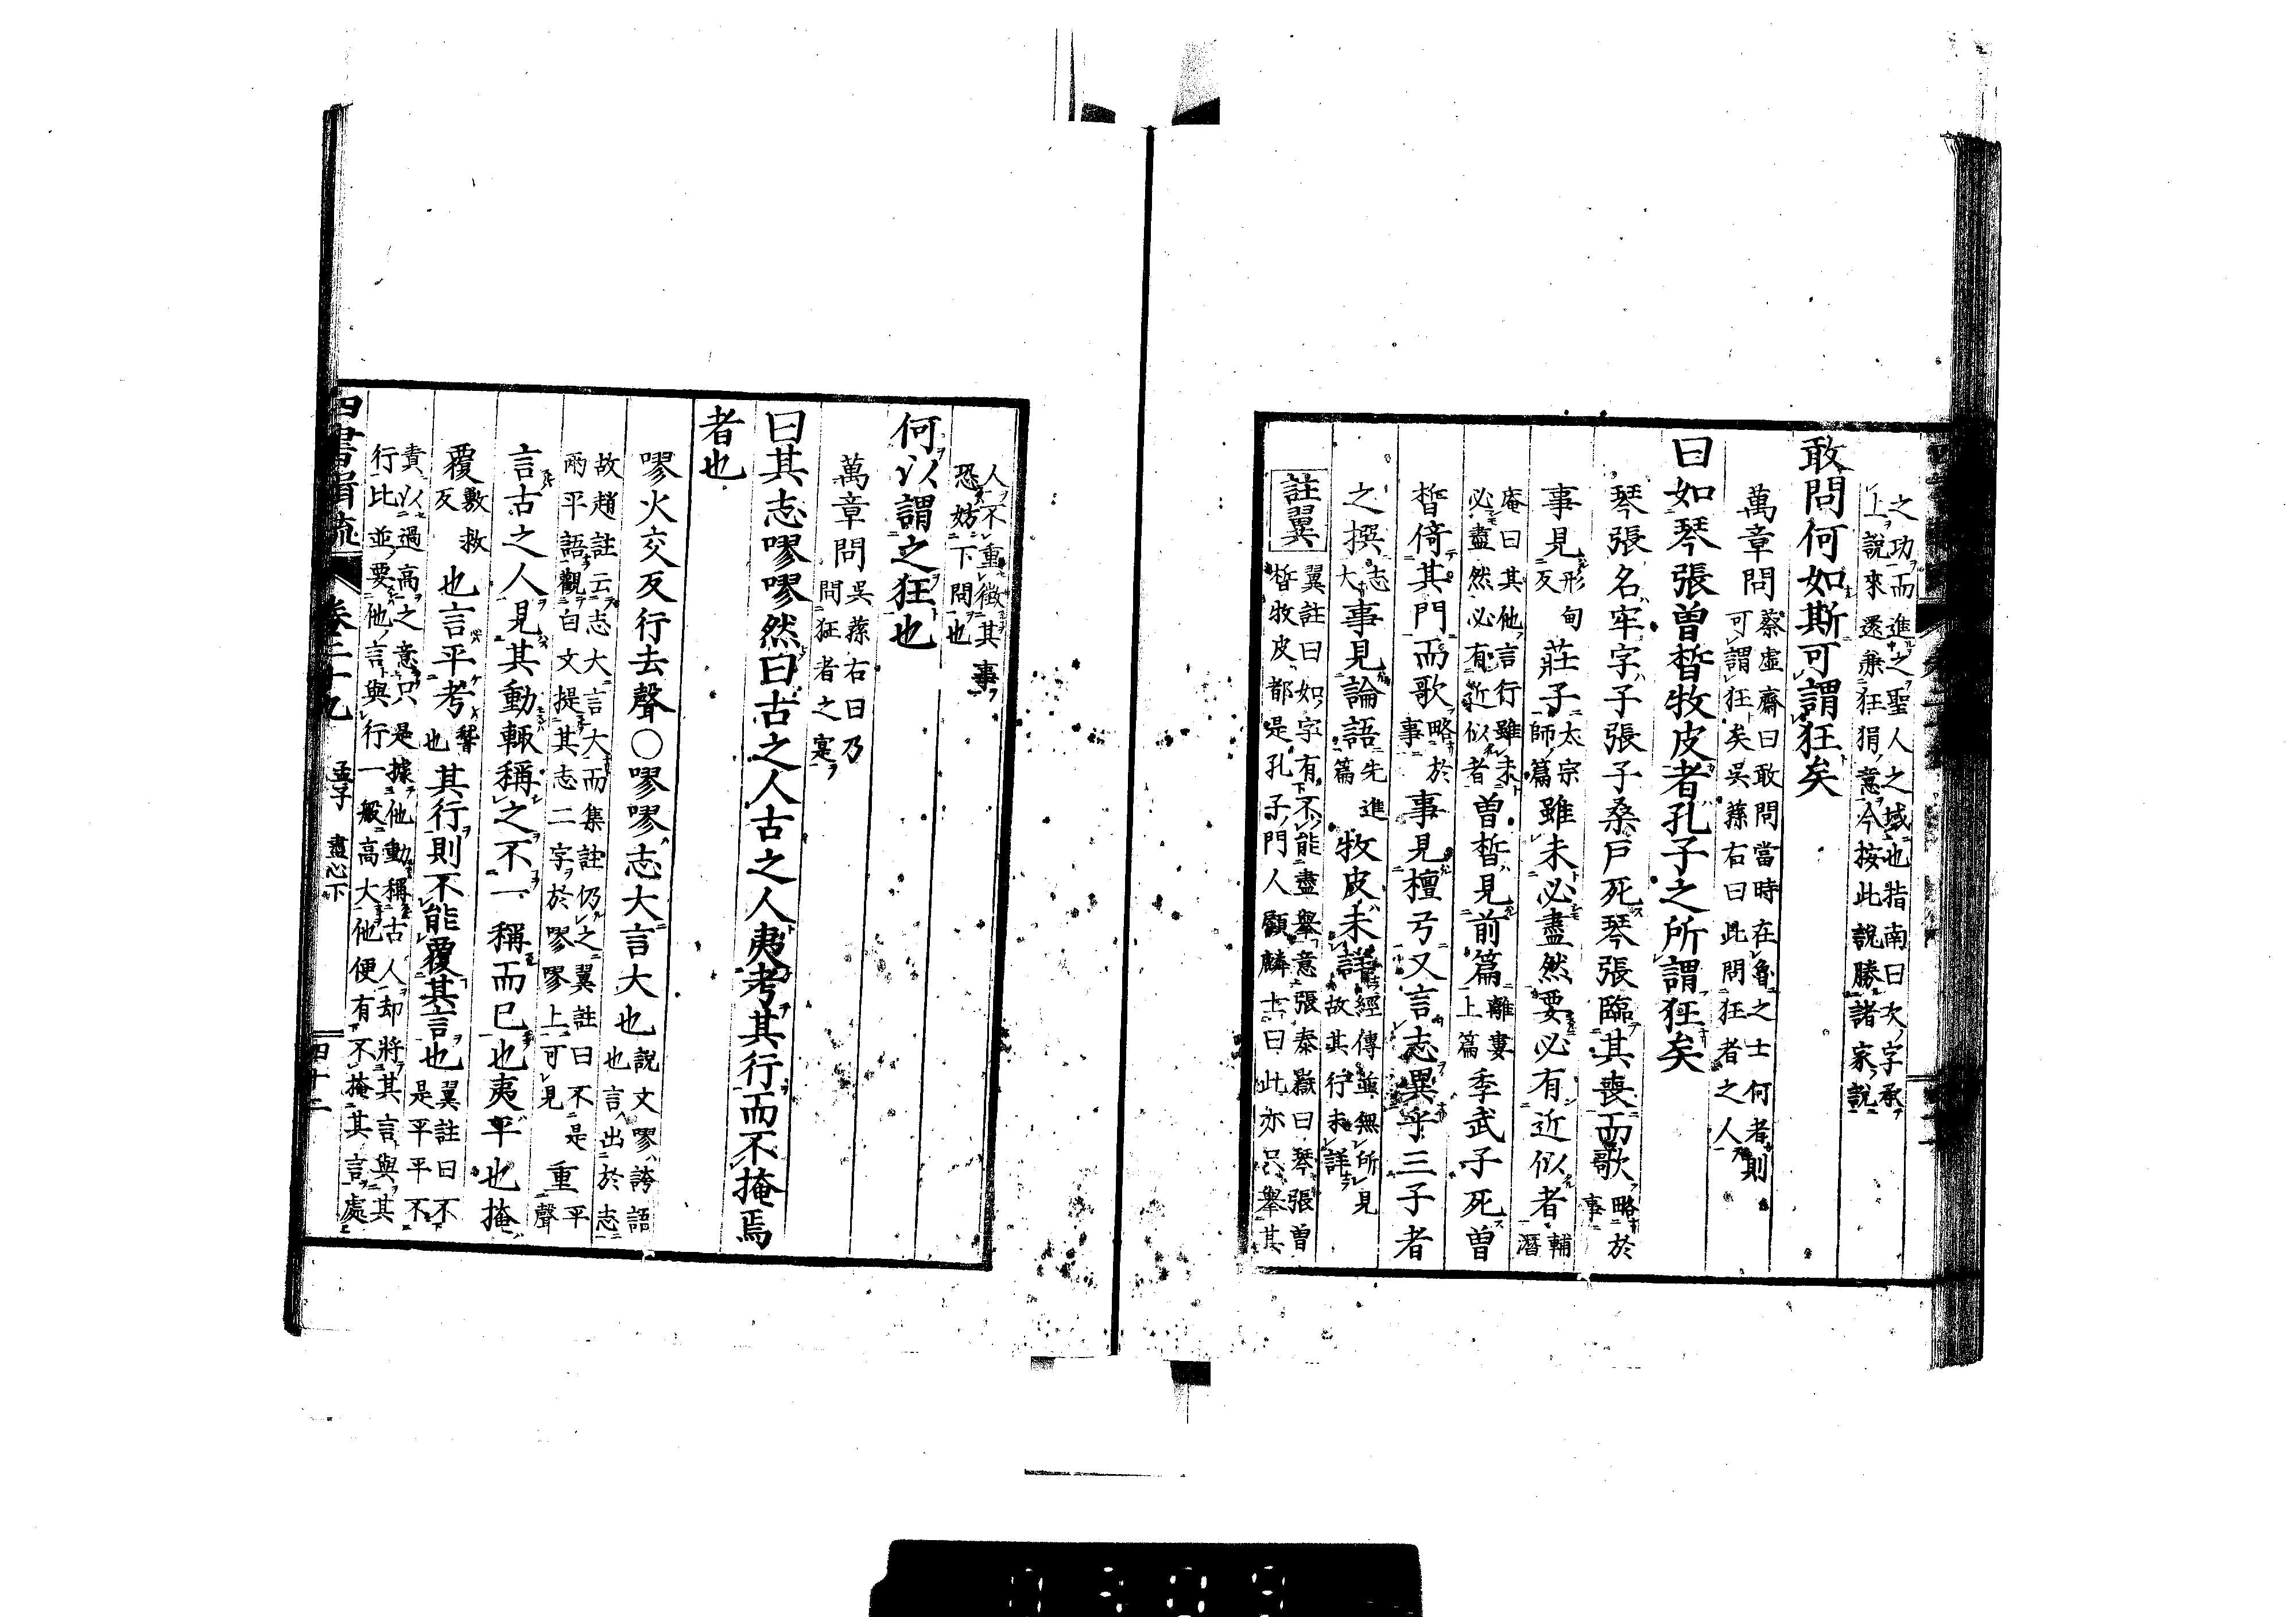 之功而進之聖人之域也指南曰次字承
上說來還兼狂狷意今按此說勝諸家說
敢問何如斯可謂狂矣
萬章問蔡虛齋曰敢問當時在魯之士何者則
可謂狂矣吳蓀右曰此問狂者之人
曰如琴張曾晳牧皮者孔子之所謂狂矣
琴張名牢字子張子桑戶死琴張臨其喪而歌略於
事
事見形甸
反莊子太宗
師篇雖未必盡然要必有近似者輔
潛
庵曰其他言行雖未
必盡然必有近似者曾晳見前篇離婁
上篇季武子死曾
晳倚其門而歌略於
事事見檀弓又言志異乎三子者
之撰志
大事見論語先進
篇牧皮未詳經傳並無所見
故其行未詳
註翼翼註曰如字有不能盡舉意張泰嶽曰琴張曾
晳牧皮都是孔子門人顧麟士曰此亦只舉其
人不重徵其事
恐妨下問也
何以謂之狂也
萬章問吳蓀右曰乃
問狂者之寔
曰其志嘐嘐然曰古之人古之人夷考其行而不掩焉
者也
嘐火交反行去聲○嘐嘐志大言大也說文嘐誇語
也言出於志
故趙註云志大言大而集註仍之翼註曰不是重平
兩平語觀白文提其志二字於嘐嘐上可見重平
聲
言古之人見其動輒稱之不一稱而已也夷平也掩
覆敷救
反也言平考聲
也其行則不能覆其言也翼註曰不
是平平不
責以過高之意只是據他動稱古人却將其言與其
行比並要他言與行一般高大他便有不掩其言處
四書 卷二十九 孟子 盡心下 四十二